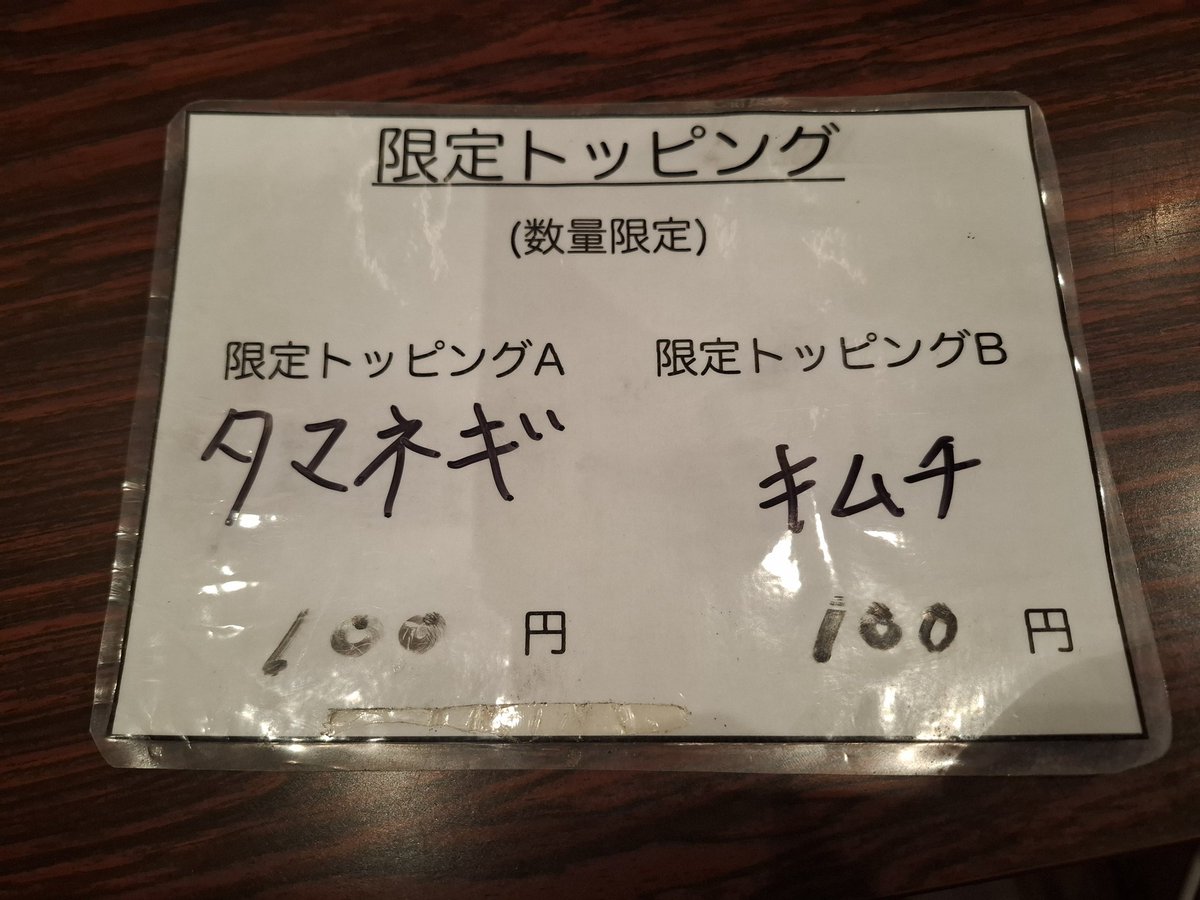 限定トッピング
(数量限定)
限定トッピングA
タマネギ
100円
限定トッピングB
キムチ
100円